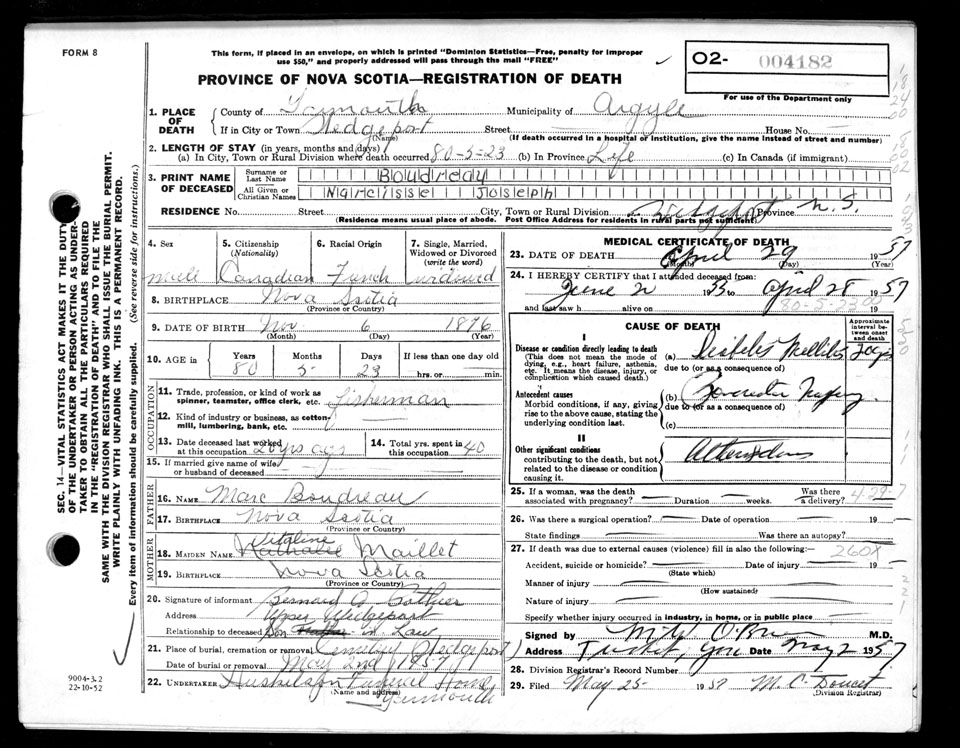 FORM 8
This form, if placed in an envelope, on which is printed "Dominion Statistics—Free, penalty for improper
use $50," and properly addressed will pass through the mail "FREE"
O2- 004182
For use of the Department only
PROVINCE OF NOVA SCOTIA—REGISTRATION OF DEATH
1. PLACE OF DEATH
County of Yarmouth Municipality of Argyle
If in City or Town Wedgeport Street House No.
(Name) (If death occurred in a hospital or institution, give the name instead of street and number)
2. LENGTH OF STAY (in years, months and days)
(a) In City, Town or Rural Division where death occurred 80-5-23 (b) In Province Life (c) In Canada (if immigrant)
3. PRINT NAME OF DECEASED
Surname or Last Name Boudreau
All Given or Christian Names Narcisse Joseph
RESIDENCE No. Street City, Town or Rural Division Wedgeport Province N.S.
(Residence means usual place of abode. Post Office Address for residents in rural parts not sufficient)
4. Sex 5. Citizenship (Nationality) 6. Racial Origin 7. Single, Married, Widowed or Divorced (write the word)
male Canadian French widowed
8. BIRTHPLACE Nova Scotia
(Province or Country)
9. DATE OF BIRTH Nov 6 1876
(Month) (Day) (Year)
10. AGE in Years Months Days If less than one day old
80 5 23 hrs. or min.
OCCUPATION
11. Trade, profession, or kind of work as spinner, teamster, office clerk, etc. fisherman
12. Kind of industry or business, as cotton-mill, lumbering, bank, etc.
13. Date deceased last worked at this occupation 20 yrs ago 14. Total yrs. spent in this occupation 40
15. If married give name of wife or husband of deceased
FATHER
16. NAME Marc Boudreau
17. BIRTHPLACE Nova Scotia
(Province or Country)
MOTHER
Vitaline
18. MAIDEN NAME Nathalie Maillet
19. BIRTHPLACE Nova Scotia
(Province or Country)
20. Signature of informant Bernard G Pothier
Address Upper Wedgeport
Relationship to deceased Son in Law
21. Place of burial, cremation or removal Cemetery Wedgeport
Date of burial or removal May 2nd 1957
22. UNDERTAKER Funeral Home
(Name and address) Yarmouth
MEDICAL CERTIFICATE OF DEATH
23. DATE OF DEATH April 29 1957
(Month) (Day) (Year)
24. I HEREBY CERTIFY that I attended deceased from:
June 2 1953 to April 28 1957
and last saw h alive on 19
80-5-23.00
CAUSE OF DEATH
Approximate interval between onset and death
I
Disease or condition directly leading to death
(This does not mean the mode of dying, e.g., heart failure, asthenia, etc. It means the disease, injury, or complication which caused death.)
(a) Diabetes Mellitus
due to (or as a consequence of)
Antecedent causes
Morbid conditions, if any, giving rise to the above cause, stating the underlying condition last.
(b)
due to (or as a consequence of)
(c)
II
Other significant conditions
contributing to the death, but not related to the disease or condition causing it.
25. If a woman, was the death associated with pregnancy? Duration weeks. Was there a delivery? 4-29-7
26. Was there a surgical operation? Date of operation 19
State findings Was there an autopsy?
27. If death was due to external causes (violence) fill in also the following:—
260X
Accident, suicide or homicide? Date of injury 19
(State which)
Manner of injury
(How sustained)
Nature of injury
Specify whether injury occurred in industry, in home, or in public place
Signed by M.D.
Address Tusket, Yar. Date May 2 1957
28. Division Registrar's Record Number
29. Filed May 25 1957 M. C. Doucet
(Division Registrar)
SEC. 14—VITAL STATISTICS ACT MAKES IT THE DUTY
OF THE UNDERTAKER OR PERSON ACTING AS UNDER-
TAKER TO OBTAIN ALL THE PARTICULARS REQUIRED
IN THE "REGISTRATION OF DEATH" AND TO FILE THE
SAME WITH THE DIVISION REGISTRAR WHO SHALL ISSUE THE BURIAL PERMIT.
WRITE PLAINLY WITH UNFADING INK. THIS IS A PERMANENT RECORD.
Every item of information should be carefully supplied. (See reverse side for instructions.)
9004-3.2
22-10-52